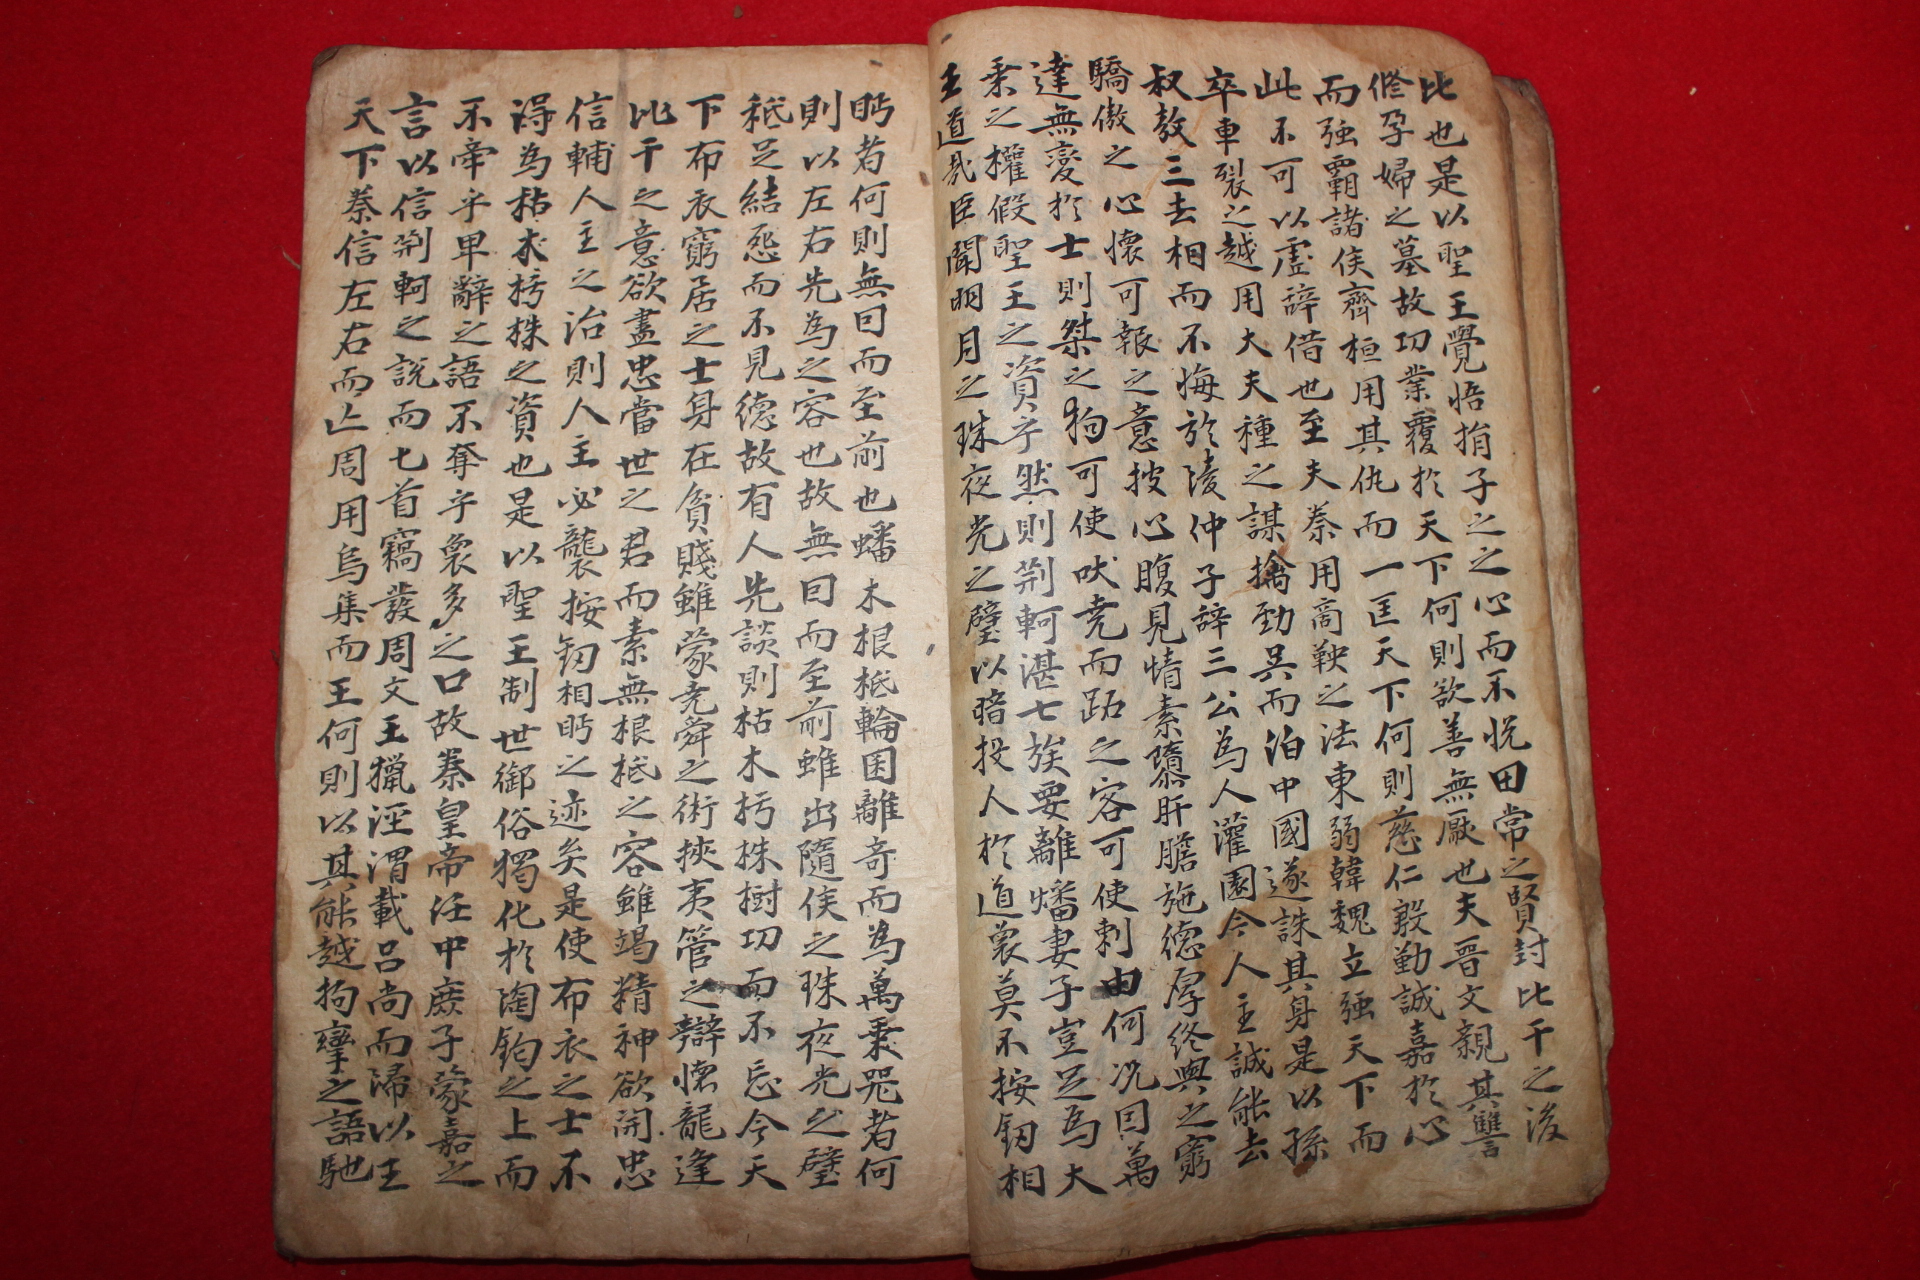 比也是以聖王覺悟捐子之之心而不悦田常之賢封比干之後
修孕婦之墓故功業覆於天下何則欲善無厭也夫晋文親其讐
而强霸諸侯齊桓用其仇而一匡天下何則慈仁殷勤誠嘉於心
此不可以虛辞借也至夫秦用商鞅之法東弱韓魏立强天下而
卒車裂之越用大夫種之謀擒勁吳而泊中國遂誅其身是以孫
叔敖三去相而不悔於陵仲子辞三公為人灌園今人主誠能去
驕傲之心懷可報之意披心腹見情素隳肝膽施德厚終與之窮
達無変於士則桀之狗可使吠尭而跖之客可使刺由何况因萬
乗之權假聖王之資乎然則荊軻湛七族要離燔妻子豈足為大
王道㢤臣聞明月之珠夜光之璧以暗投人於道衆莫不按釼相
眄者何則無因而至前也蟠木根柢輪囷離奇而為萬乗器者何
則以左右先為之容也故無因而至前雖出隨侯之珠夜光之璧
秪足結怨而不見德故有人先談則枯木朽株樹功而不忘今天
下布衣窮居之士身在貧賤雖蒙尭舜之術挾夷管之辯懷龍逢
比干之意欲盡忠當世之君而素無根柢之容雖竭精神欲開忠
信輔人主之治則人主必襲按釼相眄之迹矣是使布衣之士不
得為枯木朽株之資也是以聖王制世御俗獨化於陶鈞之上而
不牽乎卑辭之語不奪乎衆多之口故秦皇帝任中庶子蒙嘉之
言以信荊軻之說而匕首竊發周文王獵涇渭載呂尚而歸以王
天下秦信左右而亡周用烏集而王何則以其能越拘攣之語馳